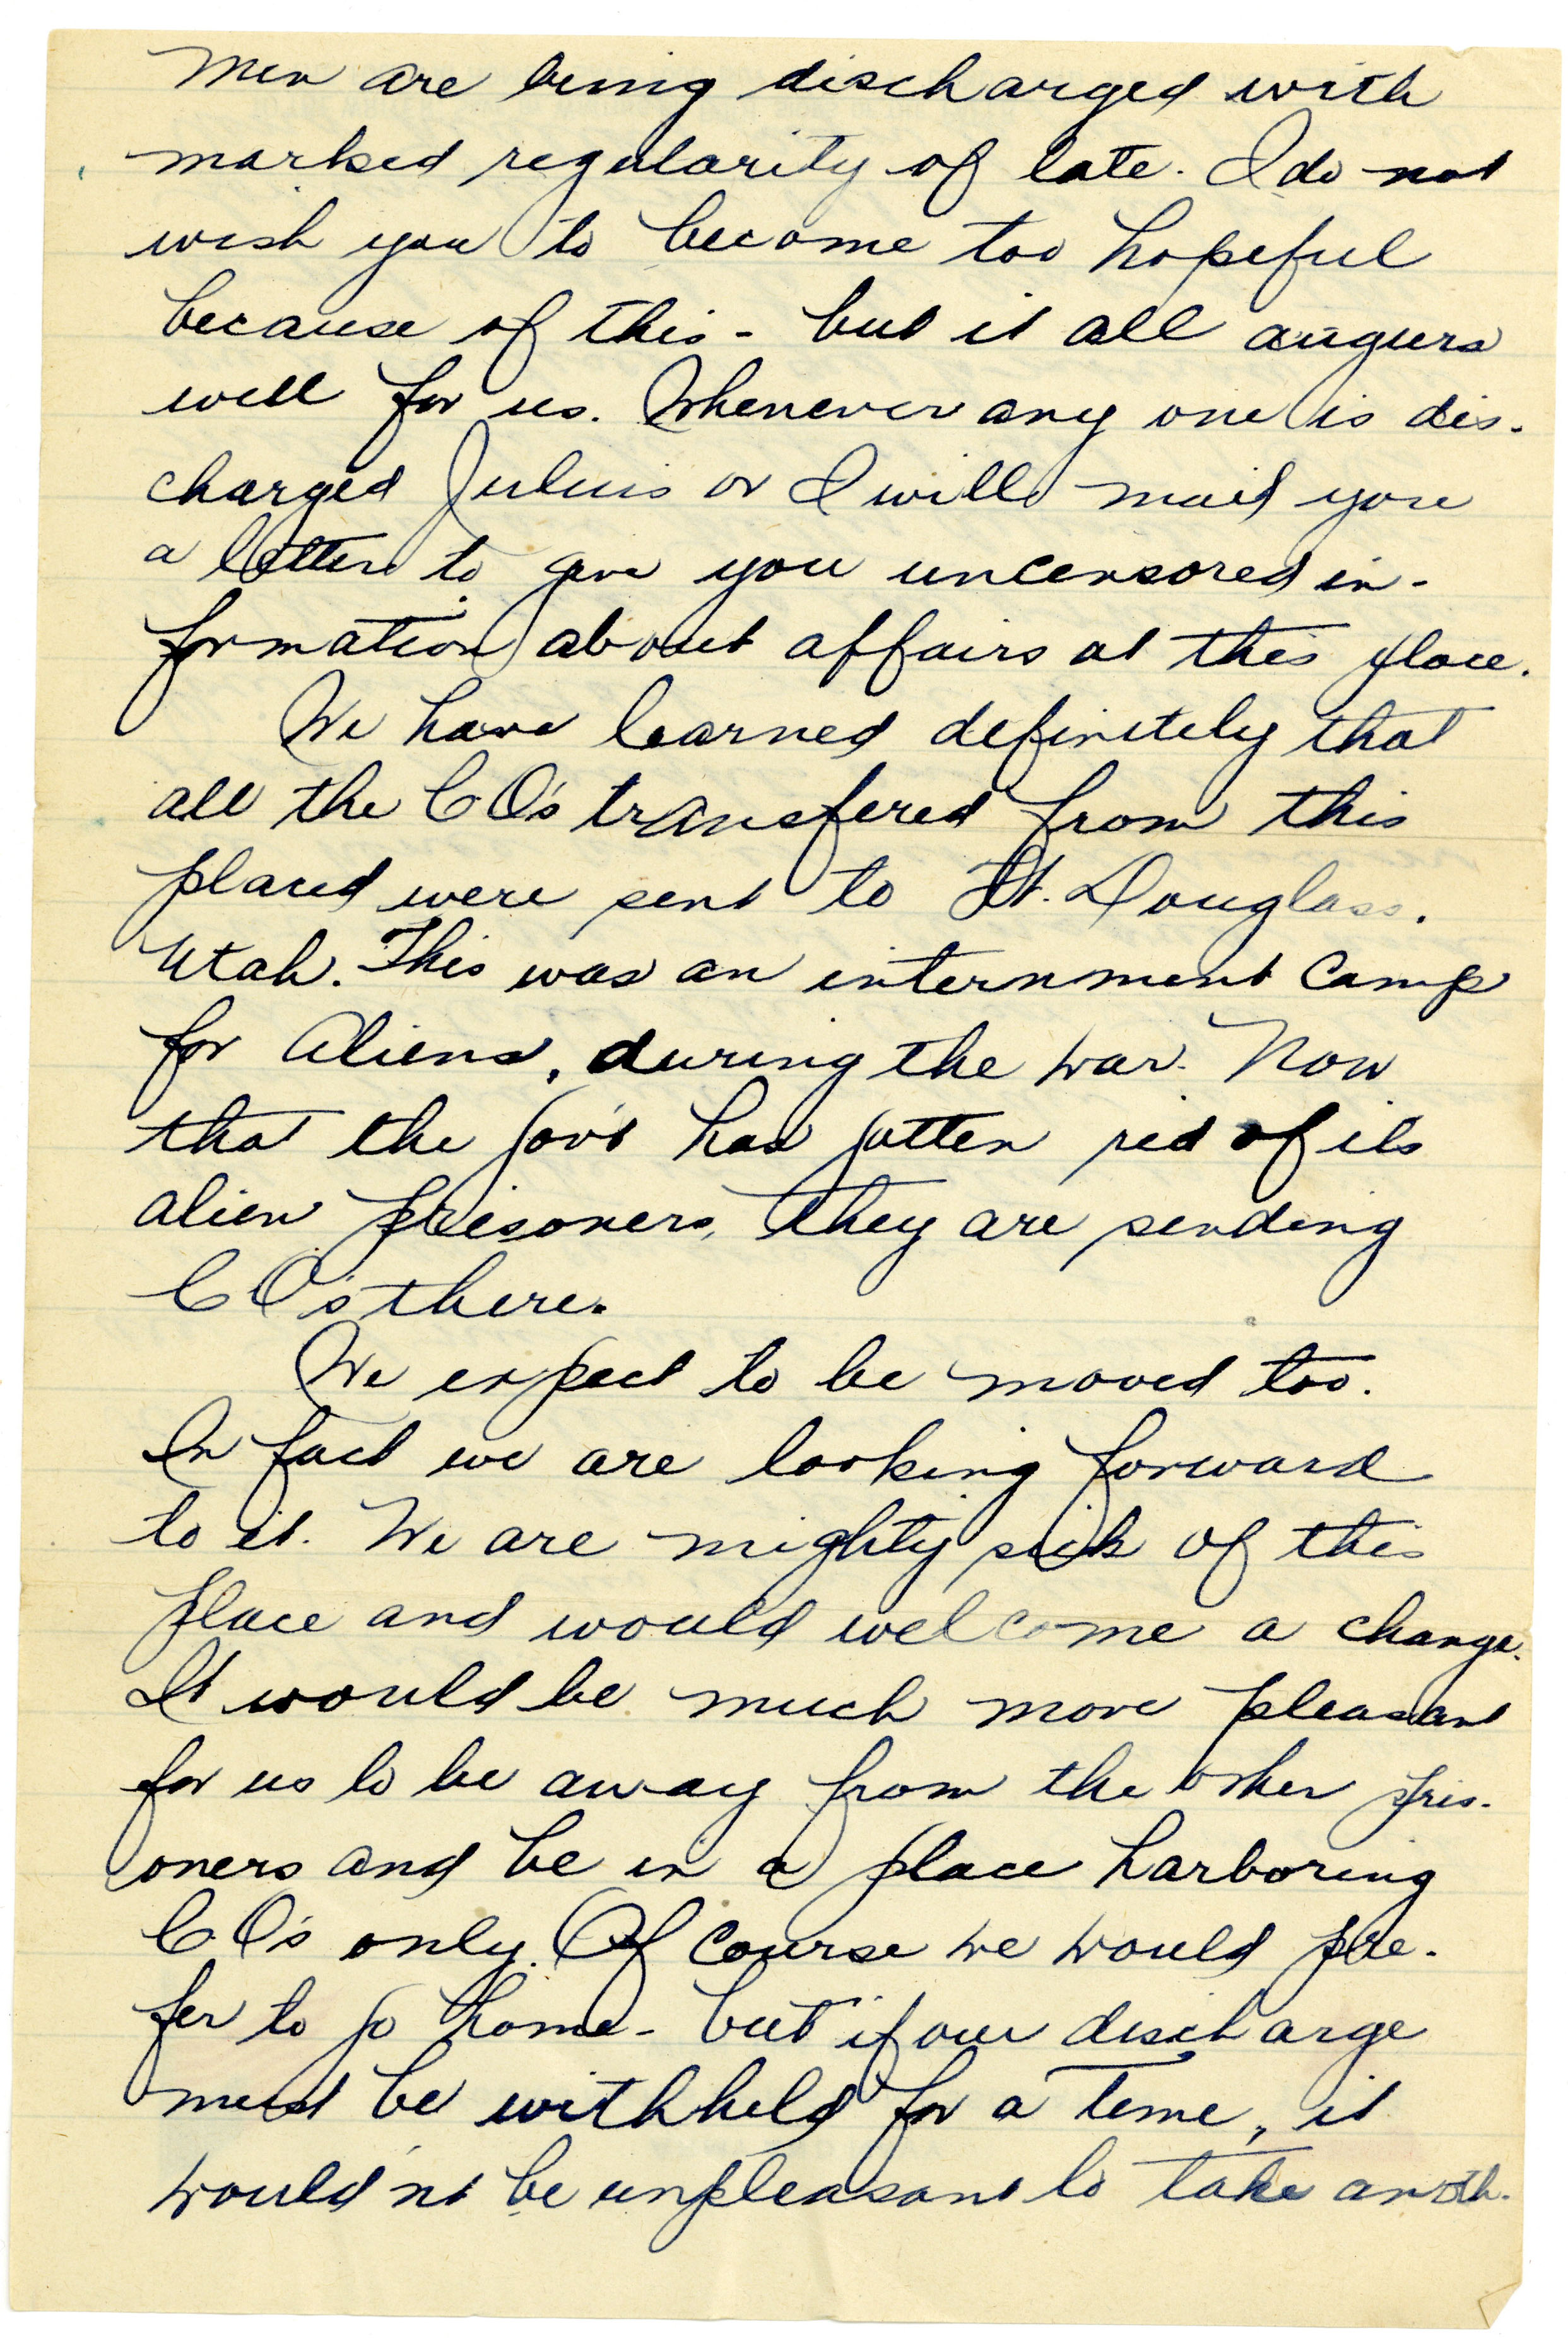 Men are being discharged with
marked regularity of late. I do not
wish you to become too hopeful
because of this - but it all augurs
well for us. Whenever any one is dis-
charged Julius or I will mail you
a letter to give you uncensored in-
formation about affairs at this place.
We have learned definitely that
all the CO's transfered from this
placed were sent to Ft. Douglass.
Utah. This was an internment camp
for aliens, during the war. Now
that the Gov't has gotten rid of its
alien prisoners, they are sending
CO's there.
We expect to be moved too.
In fact we are looking forward
to it. We are mighty sick of this
place and would welcome a change.
It would be much more pleasant
for us to be away from the other pris-
oners and be in a place harboring
CO's only. Of course we would pre-
fer to go home - but if our discharge
must be withheld for a time, it
would n't be unpleasant to take anoth-